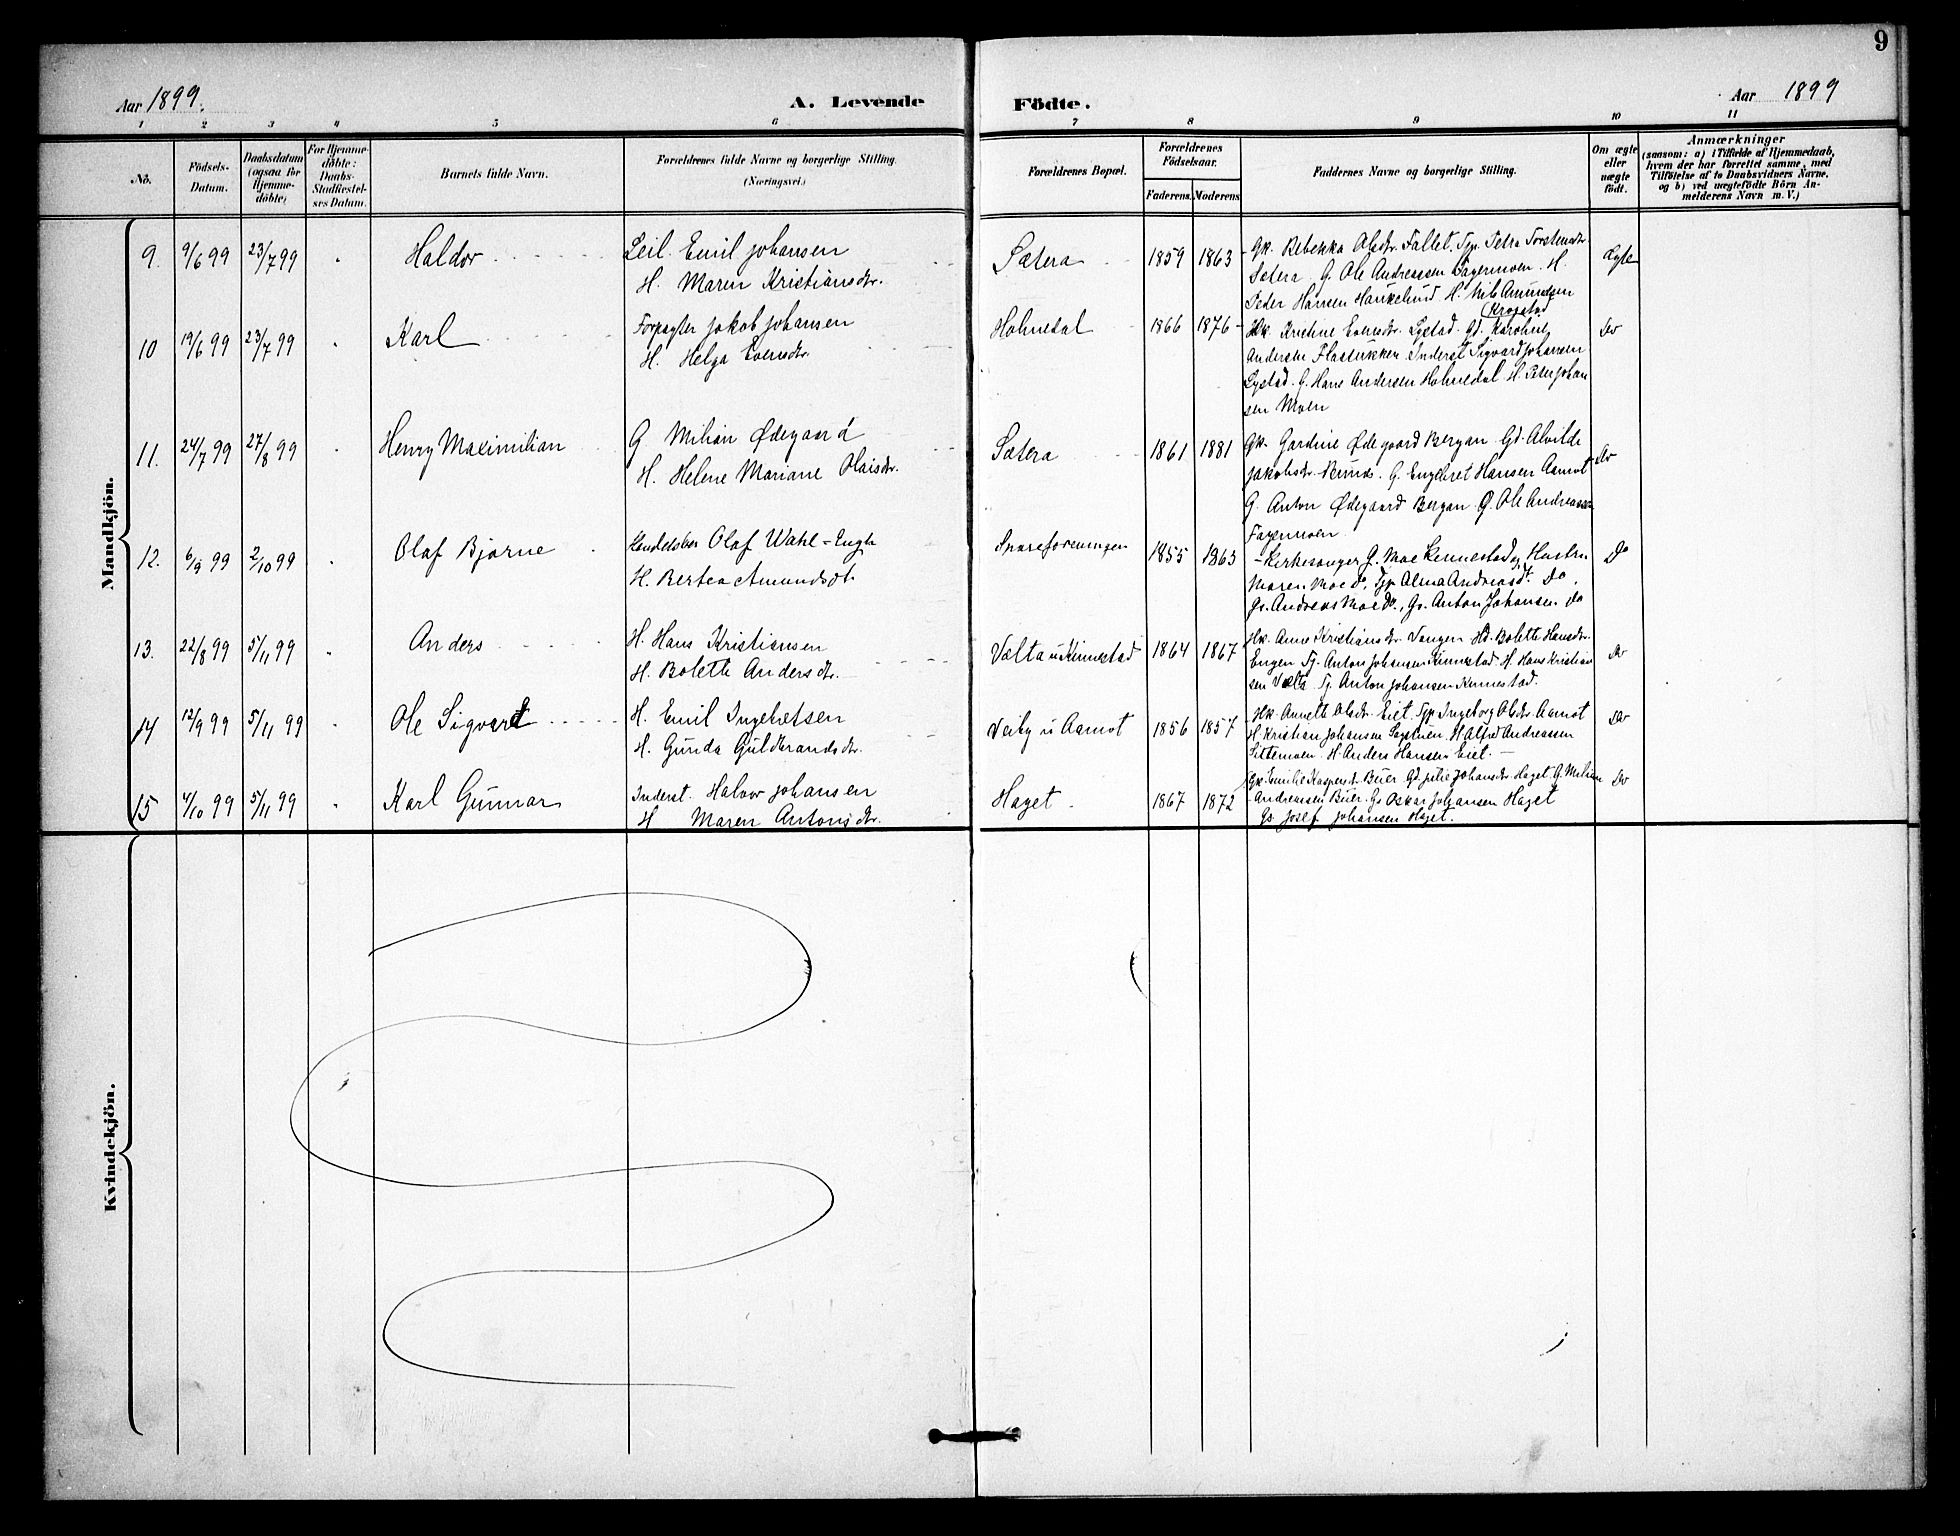 9
Aar 1899.
A. Levende
Födte.
Aar 1899
1 2 3 4 5 6 7 8 9 10 11
No.
Födsels-
Datum.
Daabsdatum
(ogsaa for
Hjemme-
döbte)
For Hjemme-
döbte:
Daabs-
Stadfæstel-
ses Datum.
Barnets fulde Navn.
Forældrenes fulde Navne og borgerlige Stilling.
(Næringsvei.)
Forældrenes Bopæl.
Forældrenes
Födselsaar.
Faderens.
Moderens.
Faddernes Navne og borgerlige Stilling.
Om ægte
eller
uægte
födt.
Anmærkninger
(saasom: a) i Tilfælde af Hjemmedaab,
hvem der har forrettet samme, med
Tilföielse af to Daabsvidners Navne,
og b) ved uægtefödte Börn An-
melderens Navn m. V.)
Mandkjön.
9. 9/6 99 23/7 99 Haldor
Leil. Emil Johansen
H. Maren Kristiansdtr.
Sætera 1859 1863
Gk. Rebekka Olsdtr. Fallet. Tjp. Petra Torstensdtr.
Sætera. G. Ole Andreassen Fagermoen. H.
Peder Hansen Haukelund H. Nils Amundsen
Krogstad
Ægte
10 19/6 99 23/7 99 Karl
Forpagter Jakob Johansen
H. Helga Evensdtr.
Holmedal 1866 1876
Hk. Kristine Evensdtr. Lystad. Gd. Karoline
Andersen Flastukken. Inderst Sigvard Johansen
Lystad. G. Hans Andersen Holmedal H. Peter Johan
sen Moen
Do
11. 24/7 99 27/8 99 Henry Maximilian
G. Milian Ødegaard
H. Helene Mariane Olaisdtr.
Sætera 1861 1881
Gk. Gardine Ødegaard Bergan. Gd. Alvilde
Jakobsdtr. G. Engebret Hansen Aamot
G. Anton Ødegaard Bergan. G. Ole Andreassen
Fagermoen
Do
12. 6/9 99 2/10 99 Olaf Bjarne
Handelsbes Olaf Wahl-Engh
H. Bertea Amundsdt.
Spareforeningen 1855 1863
Kirkesanger G. Moe Kinnestad og Hustru
Maren Moe do, Tjp Alma Andreasdt. Do.
Gs. Andreas Moe Do., Gs. Anton Johansen do
Do
13. 22/8 99 5/11 99 Anders
H. Hans Kristiansen
H. Bolette Andersdtr.
Vælta u Kinnestad 1864 1867
Hk. Anne Kristiansdtr. Vangen Hd. Bolette Hansdtr.
Engen Tj. Anton Johansen Kinnestad. H. Hans Kristian
sen Vælta Tj. Anton Johansen Kinnestad.
Do
14 12/9 99 5/11 99 Ole Sigvart
H. Emil Ingebretsen
H. Gunda Guldbrandsdtr.
Veiby u Aamot 1856 1857
Hk. Annette Olsdtr. Eiet. Tjp Ingeborg Olsdtr. Aamot
H Kristian Johansen H Alfred Andreassen
H. Anders Hansen Eiet.
Do
15 4/10 99 5/11 99 Karl Gunnar
Inderst. Halvor Johansen
H Maren Antonsdtr.
Haget 1867 1872
Gk. Emilie Kaspersdtr. Buer Gd. Julie Johansdtr. Haget G. Milian
Andreassen Buer. Gs Oskar Johansen Haget
Gs. Josef Johansen Haget.
Do
Kvindekjön.